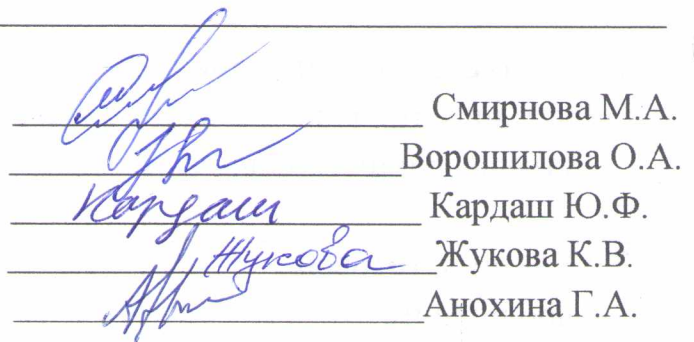 Смирнова М.А.
Ворошилова О.А.
Кардаш Кардаш Ю.Ф.
Жукова Жукова К.В.
Анохина Г.А.